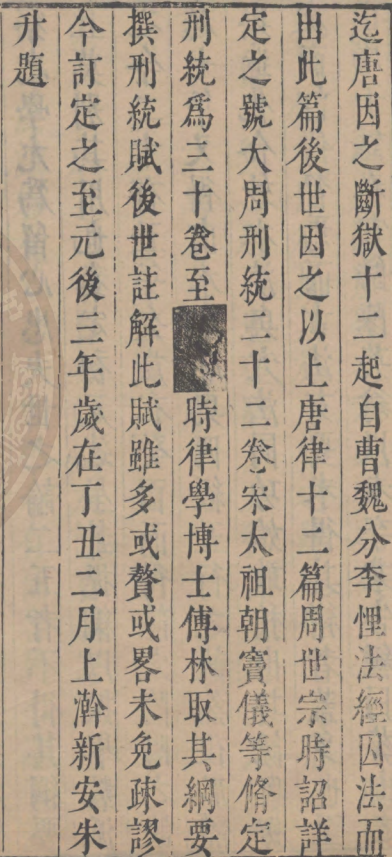 迄唐因之斷獄十二起自曹魏分李悝法經囚法而
出此篇後世因之以上唐律十二篇周世宗時詔詳
定之號大周刑統二十二卷宋太祖朝竇儀等脩定
刑統爲三十卷至時律學博士傅林取其綱要
撰刑統賦後世註解此賦雖多或贅或畧未免疎謬
今訂定之至元後三年歲在丁丑二月上澣新安朱
升題